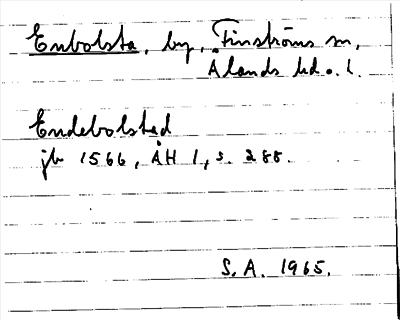 Enbolsta, by, Finströms sn,
Ålands hd o. l.
Endebolstad
jb 1566, ÅH 1, s. 288.
S. A. 1965.